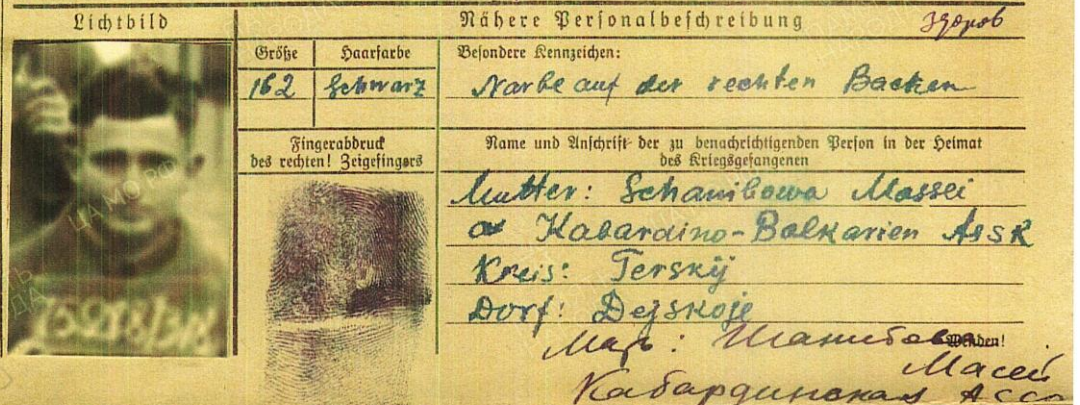 Lichtbild
Nähere Personalbeschreibung
здоров
Größe
Haarfarbe
Besondere Kennzeichen:
162
Schwarz
Narbe auf der rechten Backen
Fingerabdruck
des rechten! Zeigefingers
Name und Anschrift der zu benachrichtigenden Person in der Heimat
des Kriegsgefangenen
Mutter: Schanibowa Massei
Kabardino-Balkarien ASSR
Kreis: Terskij
Dorf: Dejskoje
Wenden!
Мать: Шанибова
Масей
Кабардинская АССР